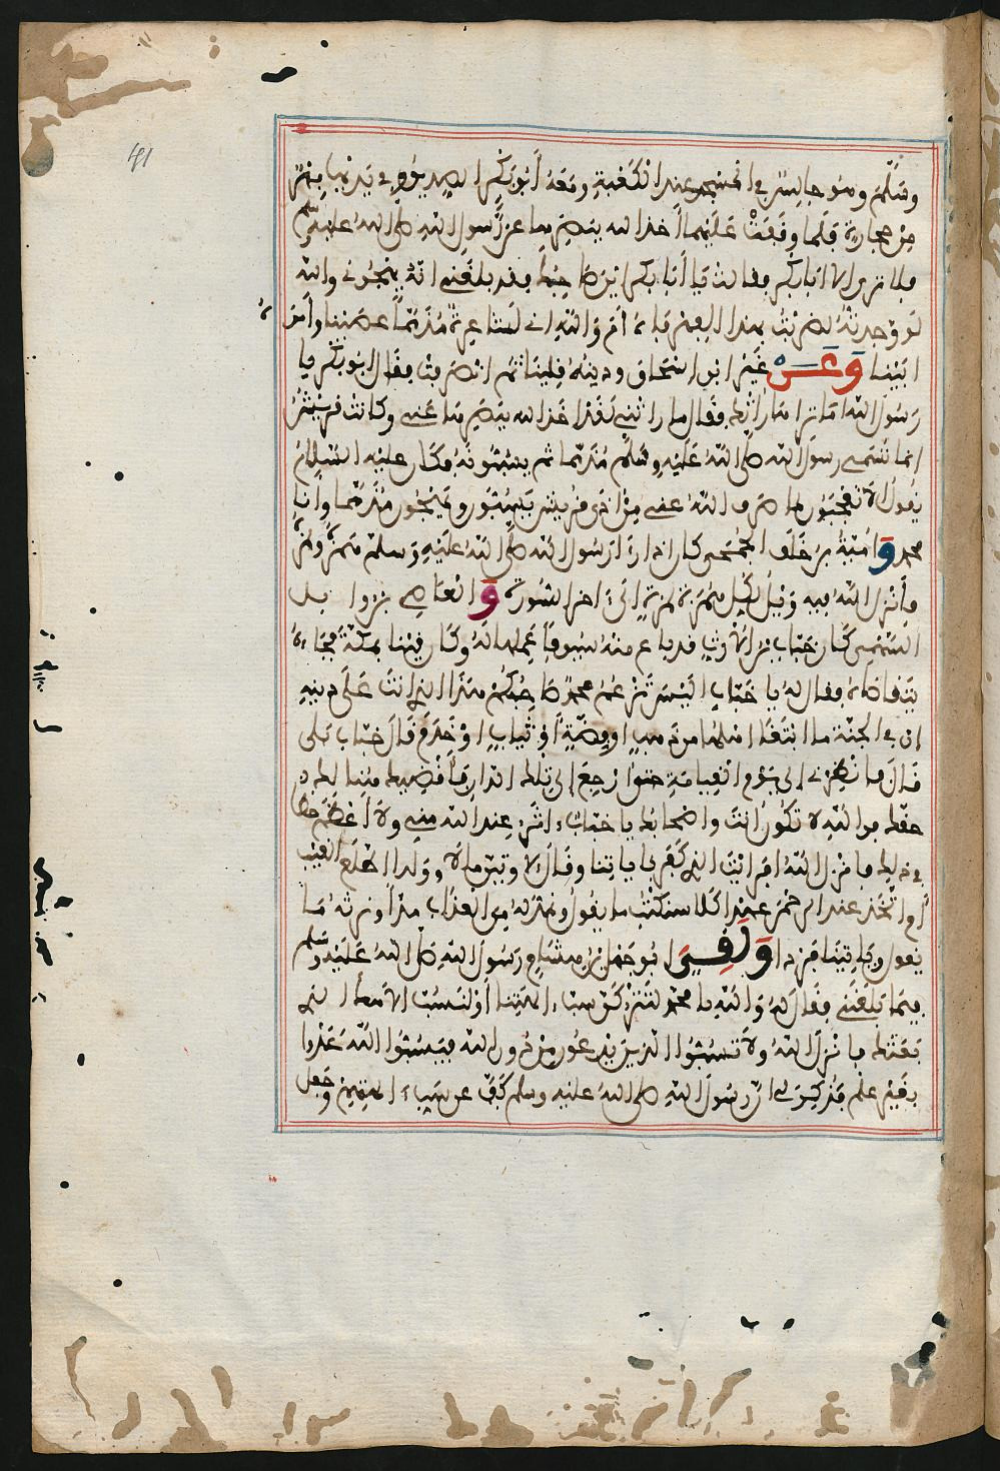 وسلم وهو جالس في المسجد عند الكعبة ومعه أبو بكر الصديق وفي يدها فهر
من حجارة فلما وقفت عليهما أخذ الله ببصرها عن رسول الله صلى الله عليه وسلم
فلا ترى إلا أبا بكر فقالت يا أبا بكر أين صاحبك فقد بلغني أنه يهجوني والله
لو وجدته لضربت بهذا الفهر فاه أم والله اني لشاعرة مذمما عصينا وأمره
ابينا وعن غير ابن إسحاق ودينه قلينا ثم انصرفت فقال أبو بكر يا
رسول الله اما تراها رأتك فقال ما رأتني لقد أخذ الله ببصرها عني وكانت قريش
إنما تسمي رسول الله صلى الله عليه وسلم مذمما ثم يسبونه فكان عليه السلام
يقول الا تعجبون لما صرف الله عني من أذى قريش يسبون ويهجون مذمما وأنا
محمد وامية بن خلف الجمحي كان اذا رأى رسول الله صلى الله عليه وسلم همزه ولمزه
فأنزل الله فيه ويل لكل همزة لمزة إلى آخر السورة والعاصي بن وايل
السهمي كان خباب بن الأرث قد باع منه سيوفا عملها له وكان قينا بمكة فجاءه
يتقاضاه فقال له يا خباب أليس يزعم محمد صاحبكم هذا الذي أنت على دينه
ان في الجنة ما ابتغا أهلها من ذهب أو فضة أو ثياب أو خدم قال خباب بلى
قال فأنظرني إلى يوم القيامة حتى ارجع إلى تلك الدار فأقضيك هنالك
حقك فوالله لا تكون أنت واصحابك يا خباب آثر عند الله مني ولا أعظم حظا
في ذلك فأنزل الله افرايت الذي كفر بآياتنا وقال لاوتين مالا وولدا اطلع الغيب
أم اتخذ عند الرحمن عهدا كلا سنكتب ما يقول ونمد له من العذاب مدا ونرثه ما
يقول وياتينا فردا ولقي أبو جهل بن هشام رسول الله صلى الله عليه وسلم
فيما بلغني فقال له والله يا محمد لتتركن سب آلهتنا أو لنسبن الاهك الذي
تعبد فأنزل الله ولا تسبوا الذين يدعون من دون الله فيسبوا الله عدوا
بغير علم فذكر لي أن رسول الله صلى الله عليه وسلم كف عن سب آلهتهم وجعل